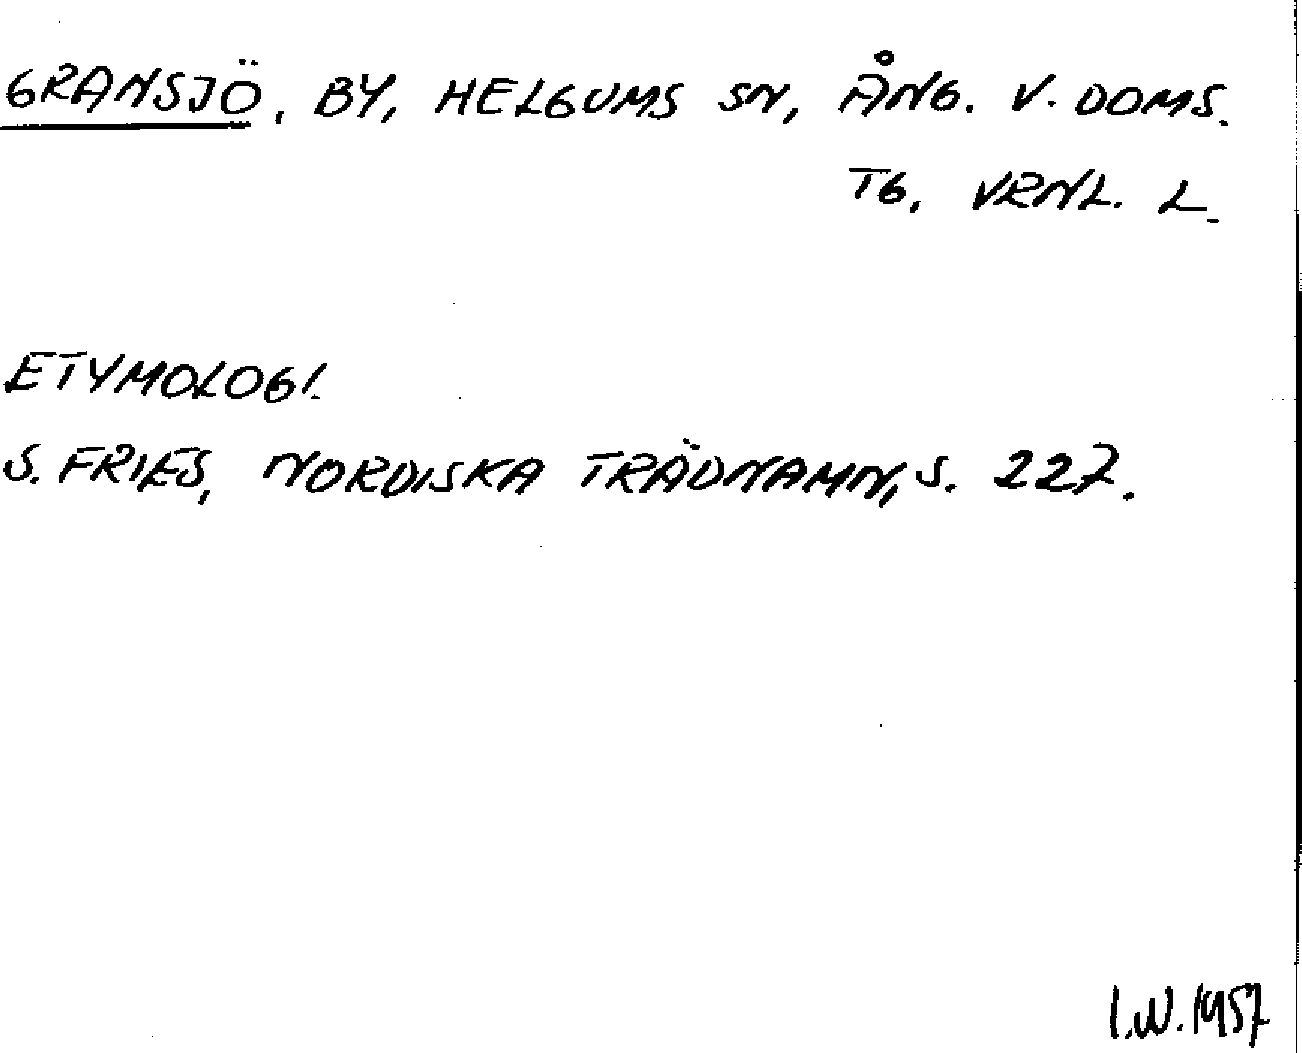 GRANSJÖ, BY, HELGUMS SN, ÅNG. V. DOMS.
TG, VRNL. L.
ETYMOLOGI.
S. FRIES, NORDISKA TRÄDNAMN, S. 227.
I.W. 1957